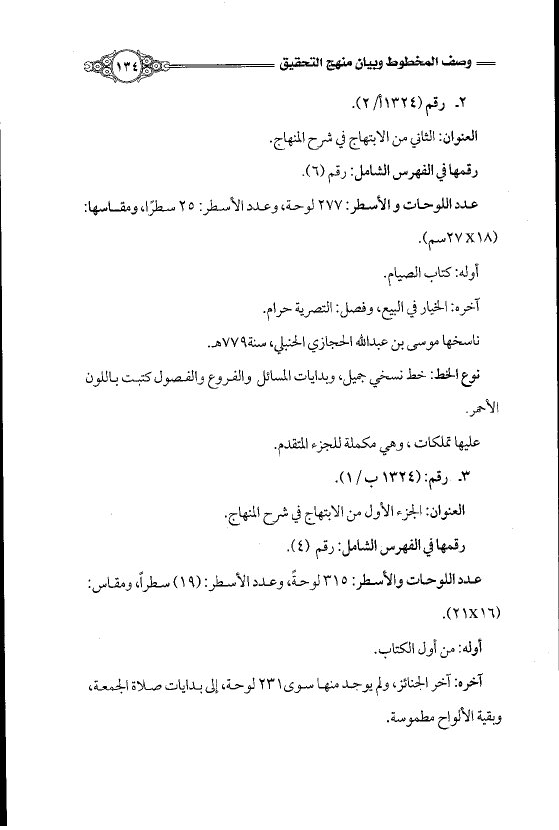 وصف المخطوط وبيان منهج التحقيق
١٣٤
٢ـ رقم (١٣٢٤أ/ ٢).
العنوان: الثاني من الابتهاج في شرح المنهاج.
رقمها في الفهرس الشامل: رقم (٦).
عدد اللوحات و الأسطر: ٢٧٧ لوحة، وعدد الأسطر: ٢٥ سطرًا، ومقاسها:
(٢٧X١٨سم).
أوله: كتاب الصيام.
آخره: الخيار في البيع، وفصل: التصرية حرام.
ناسخها موسى بن عبدالله الحجازي الحنبلي، سنة ٧٧٩هـ.
نوع الخط: خط نسخي جميل، وبدايات المسائل والفروع والفصول كتبت باللون
الأحمر.
عليها تملكات ، وهي مكملة للجزء المتقدم.
٣ـ رقم: (١٣٢٤ ب/ ١).
العنوان: الجزء الأول من الابتهاج في شرح المنهاج.
رقمها في الفهرس الشامل: رقم (٤).
عدد اللوحات والأسطر: ٣١٥ لوحةً، وعدد الأسطر: (١٩) سطراً، ومقاس:
(٢١X١٦).
أوله: من أول الكتاب.
آخره: آخر الجنائز، ولم يوجد منها سوى ٢٣١ لوحة، إلى بدايات صلاة الجمعة،
وبقية الألواح مطموسة.